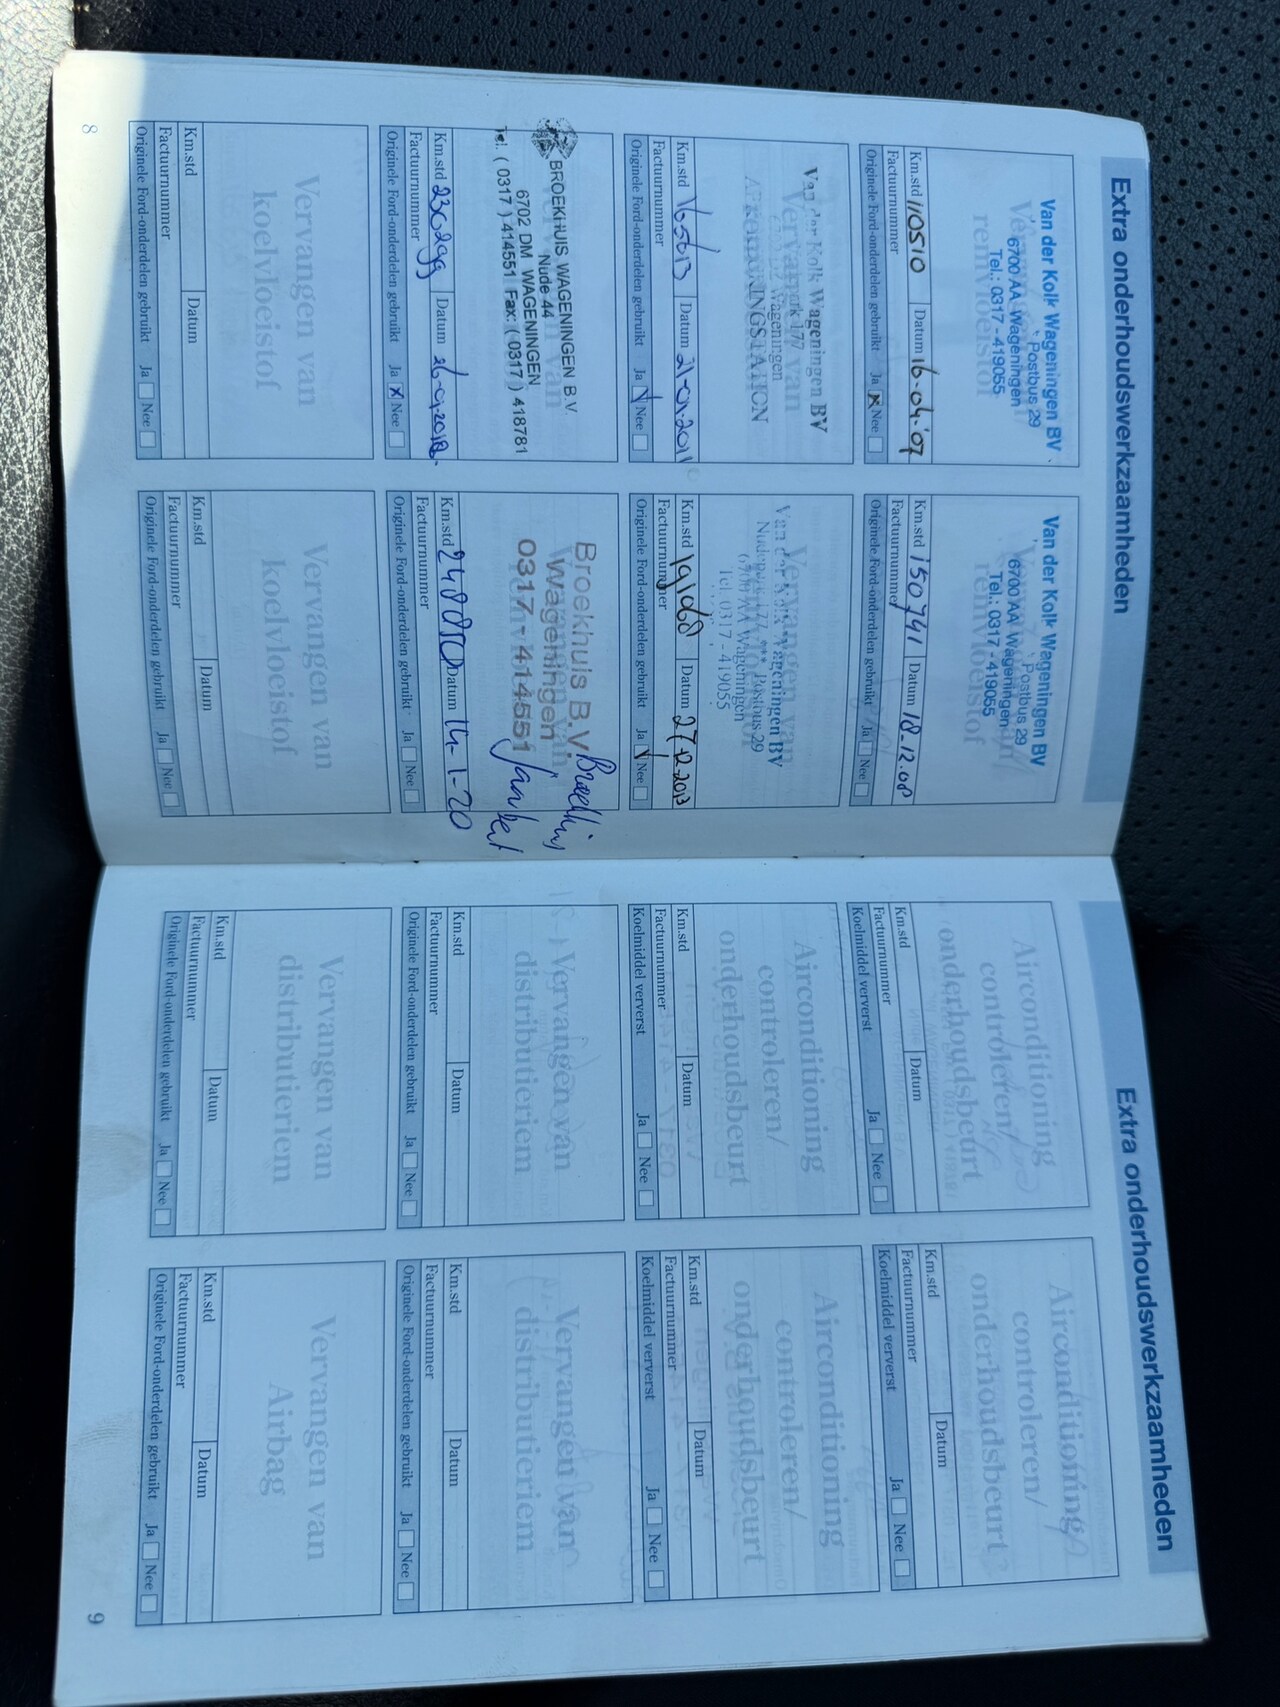 Extra onderhoudswerkzaamheden
Van der Kolk Wageningen BV
Postbus 29
6700 AA Wageningen
Tel.: 0317 - 419055
Km.std 110510 Datum 16-04-'07
Factuurnummer
Originele Ford-onderdelen gebruikt Ja Nee
Van der Kolk Wageningen BV
Postbus 29
6700 AA Wageningen
Tel.: 0317 - 419055
Km.std 150741 Datum 18-12-08
Factuurnummer
Originele Ford-onderdelen gebruikt Ja Nee
Van der Kolk Wageningen BV
Wageningen
Km.std 165613 Datum 21-01-2011
Factuurnummer
Originele Ford-onderdelen gebruikt Ja Nee
Van der Kolk Wageningen BV
Postbus 29
6700 AA Wageningen
Tel. 0317 - 419055
Km.std 191068 Datum 27-12-2013
Factuurnummer
Originele Ford-onderdelen gebruikt Ja Nee
BROEKHUIS WAGENINGEN B.V.
Nude 44
6702 DM WAGENINGEN
Tel. ( 0317 ) 414551 Fax: ( 0317 ) 418781
Km.std 230299 Datum 26-01-2018
Factuurnummer
Originele Ford-onderdelen gebruikt Ja X Nee
Broekhuis B.V.
Wageningen
0317 - 414551
Km.std 248080 Datum 14-1-20
Factuurnummer
Originele Ford-onderdelen gebruikt Ja Nee
Vervangen van
koelvloeistof
Km.std Datum
Factuurnummer
Originele Ford-onderdelen gebruikt Ja Nee
Vervangen van
koelvloeistof
Km.std Datum
Factuurnummer
Originele Ford-onderdelen gebruikt Ja Nee
8
Extra onderhoudswerkzaamheden
Airconditioning
controleren/
onderhoudsbeurt
Km.std Datum
Factuurnummer
Koelmiddel ververst Ja Nee
Airconditioning
controleren/
onderhoudsbeurt
Km.std Datum
Factuurnummer
Koelmiddel ververst Ja Nee
Airconditioning
controleren/
onderhoudsbeurt
Km.std Datum
Factuurnummer
Koelmiddel ververst Ja Nee
Airconditioning
controleren/
onderhoudsbeurt
Km.std Datum
Factuurnummer
Koelmiddel ververst Ja Nee
Vervangen van
distributieriem
Km.std Datum
Factuurnummer
Originele Ford-onderdelen gebruikt Ja Nee
Vervangen van
distributieriem
Km.std Datum
Factuurnummer
Originele Ford-onderdelen gebruikt Ja Nee
Vervangen van
distributieriem
Km.std Datum
Factuurnummer
Originele Ford-onderdelen gebruikt Ja Nee
Vervangen van
Airbag
Km.std Datum
Factuurnummer
Originele Ford-onderdelen gebruikt Ja Nee
9